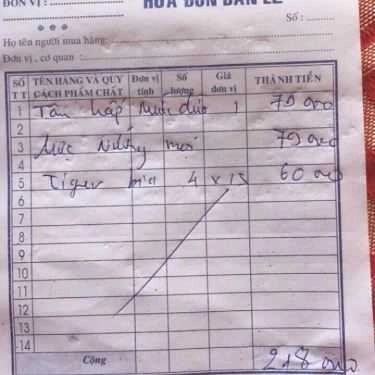 ĐƠN VỊ : HÓA ĐƠN BÁN LẺ
Số :
Họ tên người mua hàng
Đơn vị , cơ quan :
SỐ TT TÊN HÀNG VÀ QUY CÁCH PHẨM CHẤT Đơn vị tính Số lượng Giá đơn vị THÀNH TIỀN
1 Tôm hấp nước dừa 1 79 000
2
3 Mực Nướng 79 000
4
5 Tiger bia 4 x 15 60 000
6
7
8
9
10
11
12
13
14
Cộng 218 000